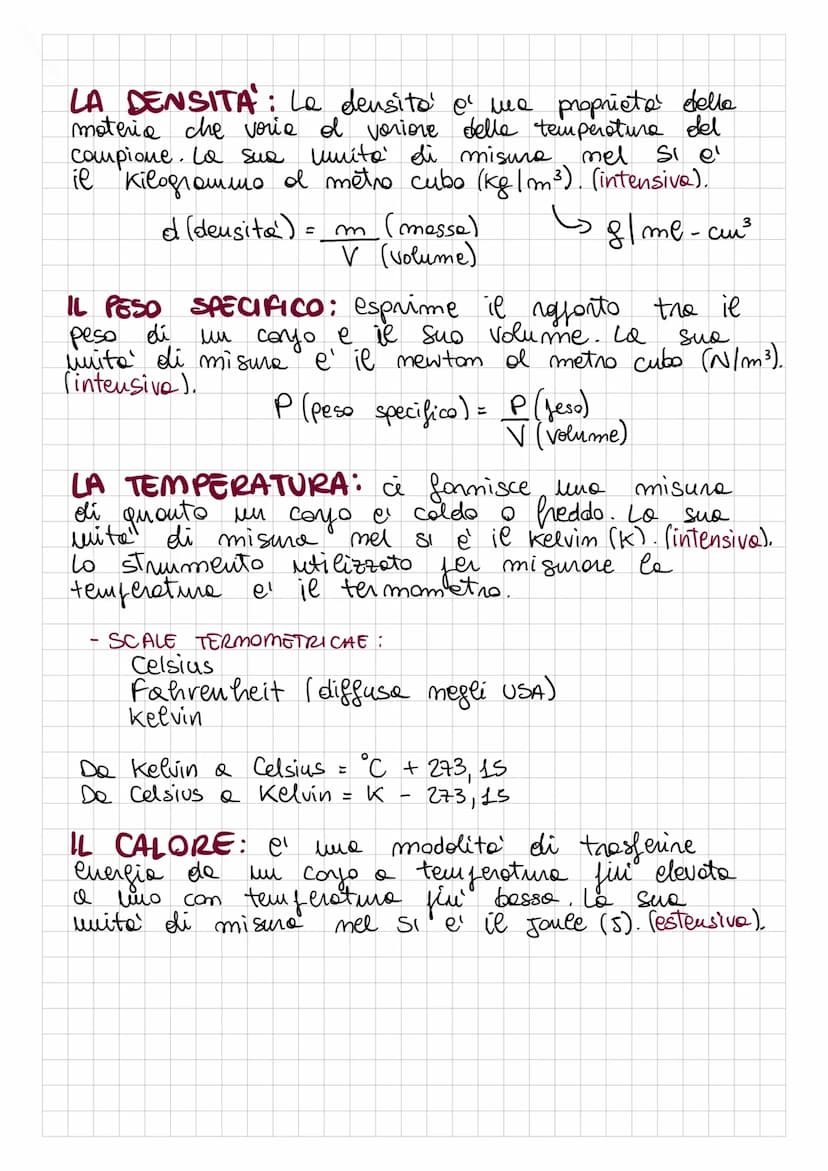 LA DENSITA': La densita' e' una proprieta' della
materia che varia al variare della temperatura del
campione. La sua unita' di misura nel SI e'
il kilogrammo al metro cubo (kg/m³). (intensiva).
d (densita') = m (massa)
V (volume)
↳ g/ml - cm³
IL PESO SPECIFICO: esprime il rapporto tra il
peso di un corpo e il suo volume. La sua
unita' di misura e' il newton al metro cubo (N/m³).
(intensiva).
P (peso specifico) = P (peso)
V (volume)
LA TEMPERATURA: ci fornisce una misura
di quanto un corpo e' caldo o freddo. La sua
unita' di misura nel SI e' il kelvin (K). (intensiva).
Lo strumento utilizzato per misurare la
temperatura e' il termometro.
- SCALE TERMOMETRICHE:
Celsius
Fahrenheit (diffusa negli USA)
Kelvin
Da Kelvin a Celsius = °C + 273,15
Da Celsius a Kelvin = K - 273,15
IL CALORE: e' una modalita' di trasferire
energia da un corpo a temperatura piu' elevata
a uno con temperatura piu' bassa. La sua
unita' di misura nel SI e' il Joule (J). (estensiva).